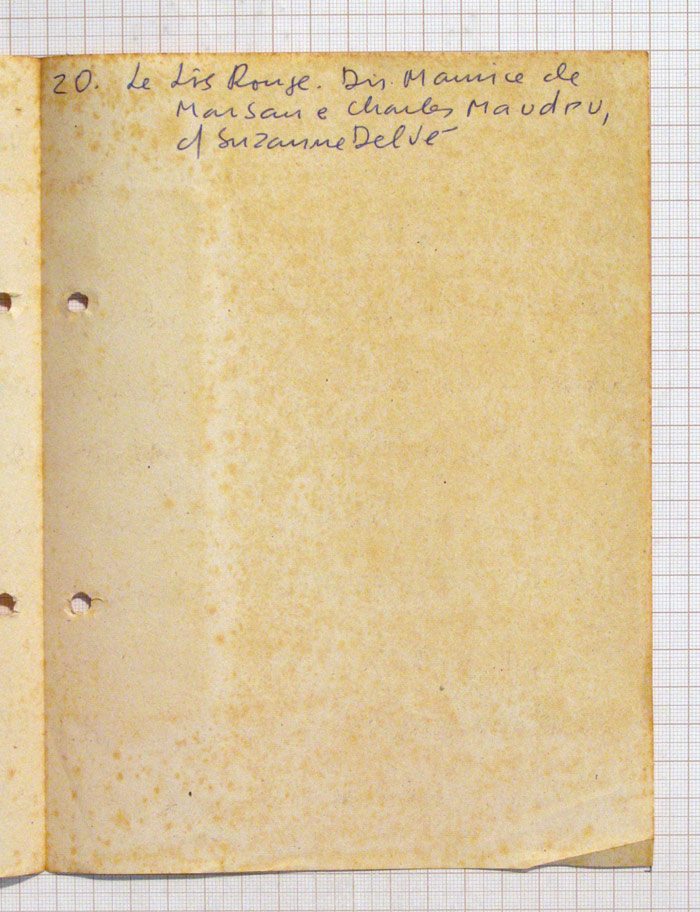 20. Le Lis Rouge. Dir. Maurice de
Marsan e Charles Maudru,
c/ Suzanne Delvé